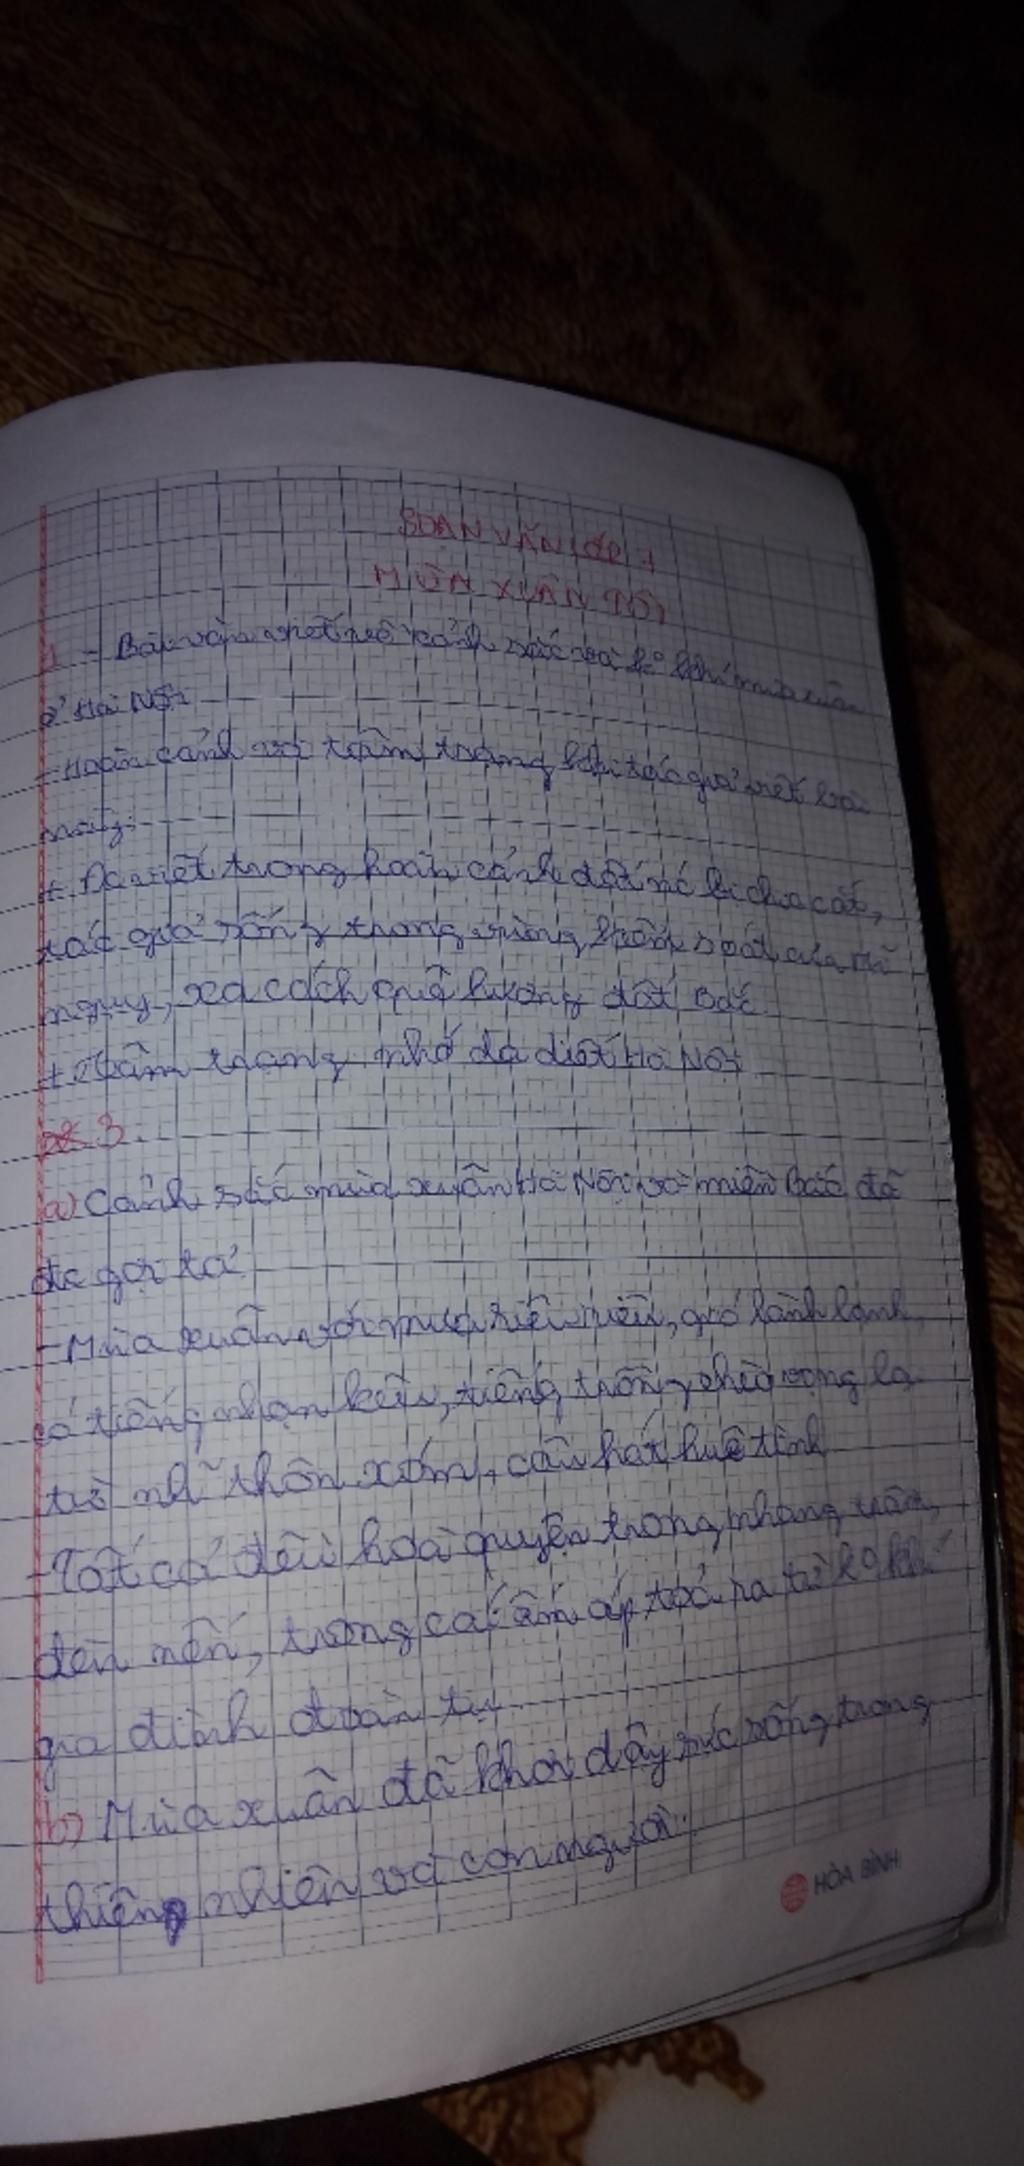 SOẠN VĂN lớp 7
MÙA XUÂN
1 - Bài văn viết về cảnh sắc và k° khí mùa xuân
ở Hà Nội
- Hoàn cảnh và tâm trạng khi tác giả viết bài
này:
+ Đc viết trong hoàn cảnh đất nc bị chia cắt,
tác giả sống trong vùng kiểm soát của Mĩ
nguỵ, xa cách quê hương đất Bắc
+ Tâm trạng nhớ da diết Hà Nội
3.
a) Cảnh sắc mùa xuân Hà Nội và miền Bắc đã
đc gợi tả
- Mùa xuân với mưa riêu riêu, gió lành lạnh
có tiếng nhạn kêu, tiếng trống chèo vọng lại
từ nh~ thôn xóm, câu hát huê tình
- Tất cả đều hoà quyện trong nhang trầm,
đèn nến, trong cái ấm áp toả ra từ k° khí
gia đình đoàn tụ
b) Mùa xuân đã khơi dậy sức sống trong
thiên nhiên và con người.
HÒA BÌNH